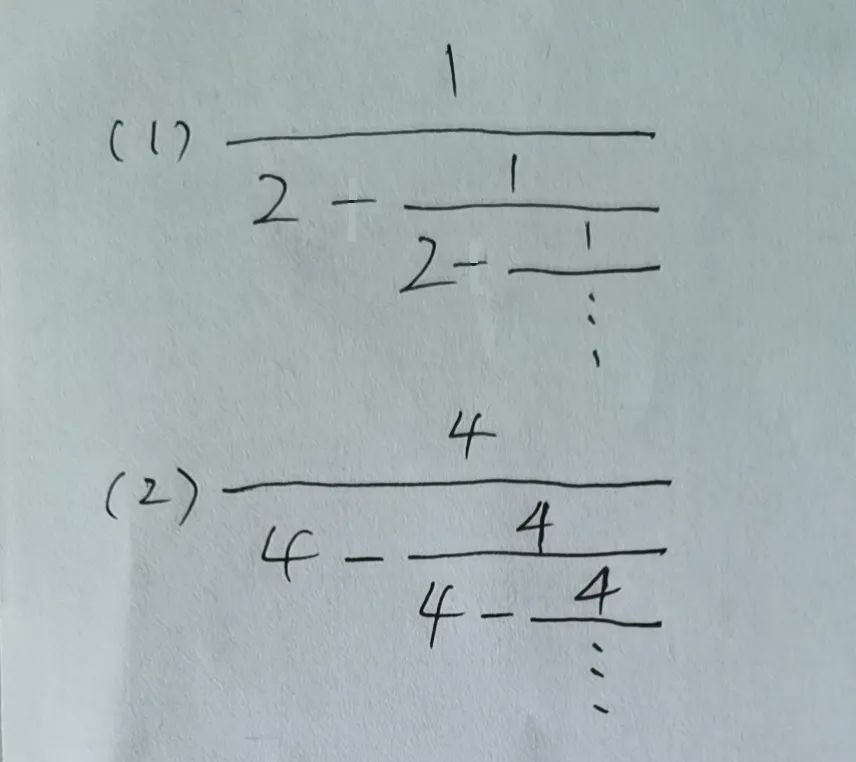 1
(1)
2 - 1
2 - 1
⋮
4
(2)
4 - 4
4 - 4
⋮